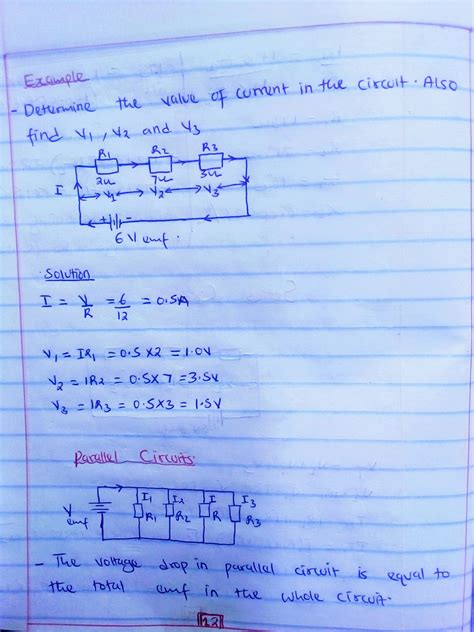 Example
- Determine the value of current in the circuit. Also
find V1, V2 and V3
R1 R2 R3
I 2Ω V1 7Ω V2 3Ω V3
+ -
6V emf.
Solution
I = V/R = 6/12 = 0.5A
V1 = IR1 = 0.5 X2 = 1.0V
V2 = IR2 = 0.5X7 = 3.5V
V3 = IR3 = 0.5X3 = 1.5V
Parallel Circuits.
V emf I1 R1 I2 R2 I R I3 R3
- The voltage drop in parallel circuit is equal to
the total emf in the whole circuit.
12